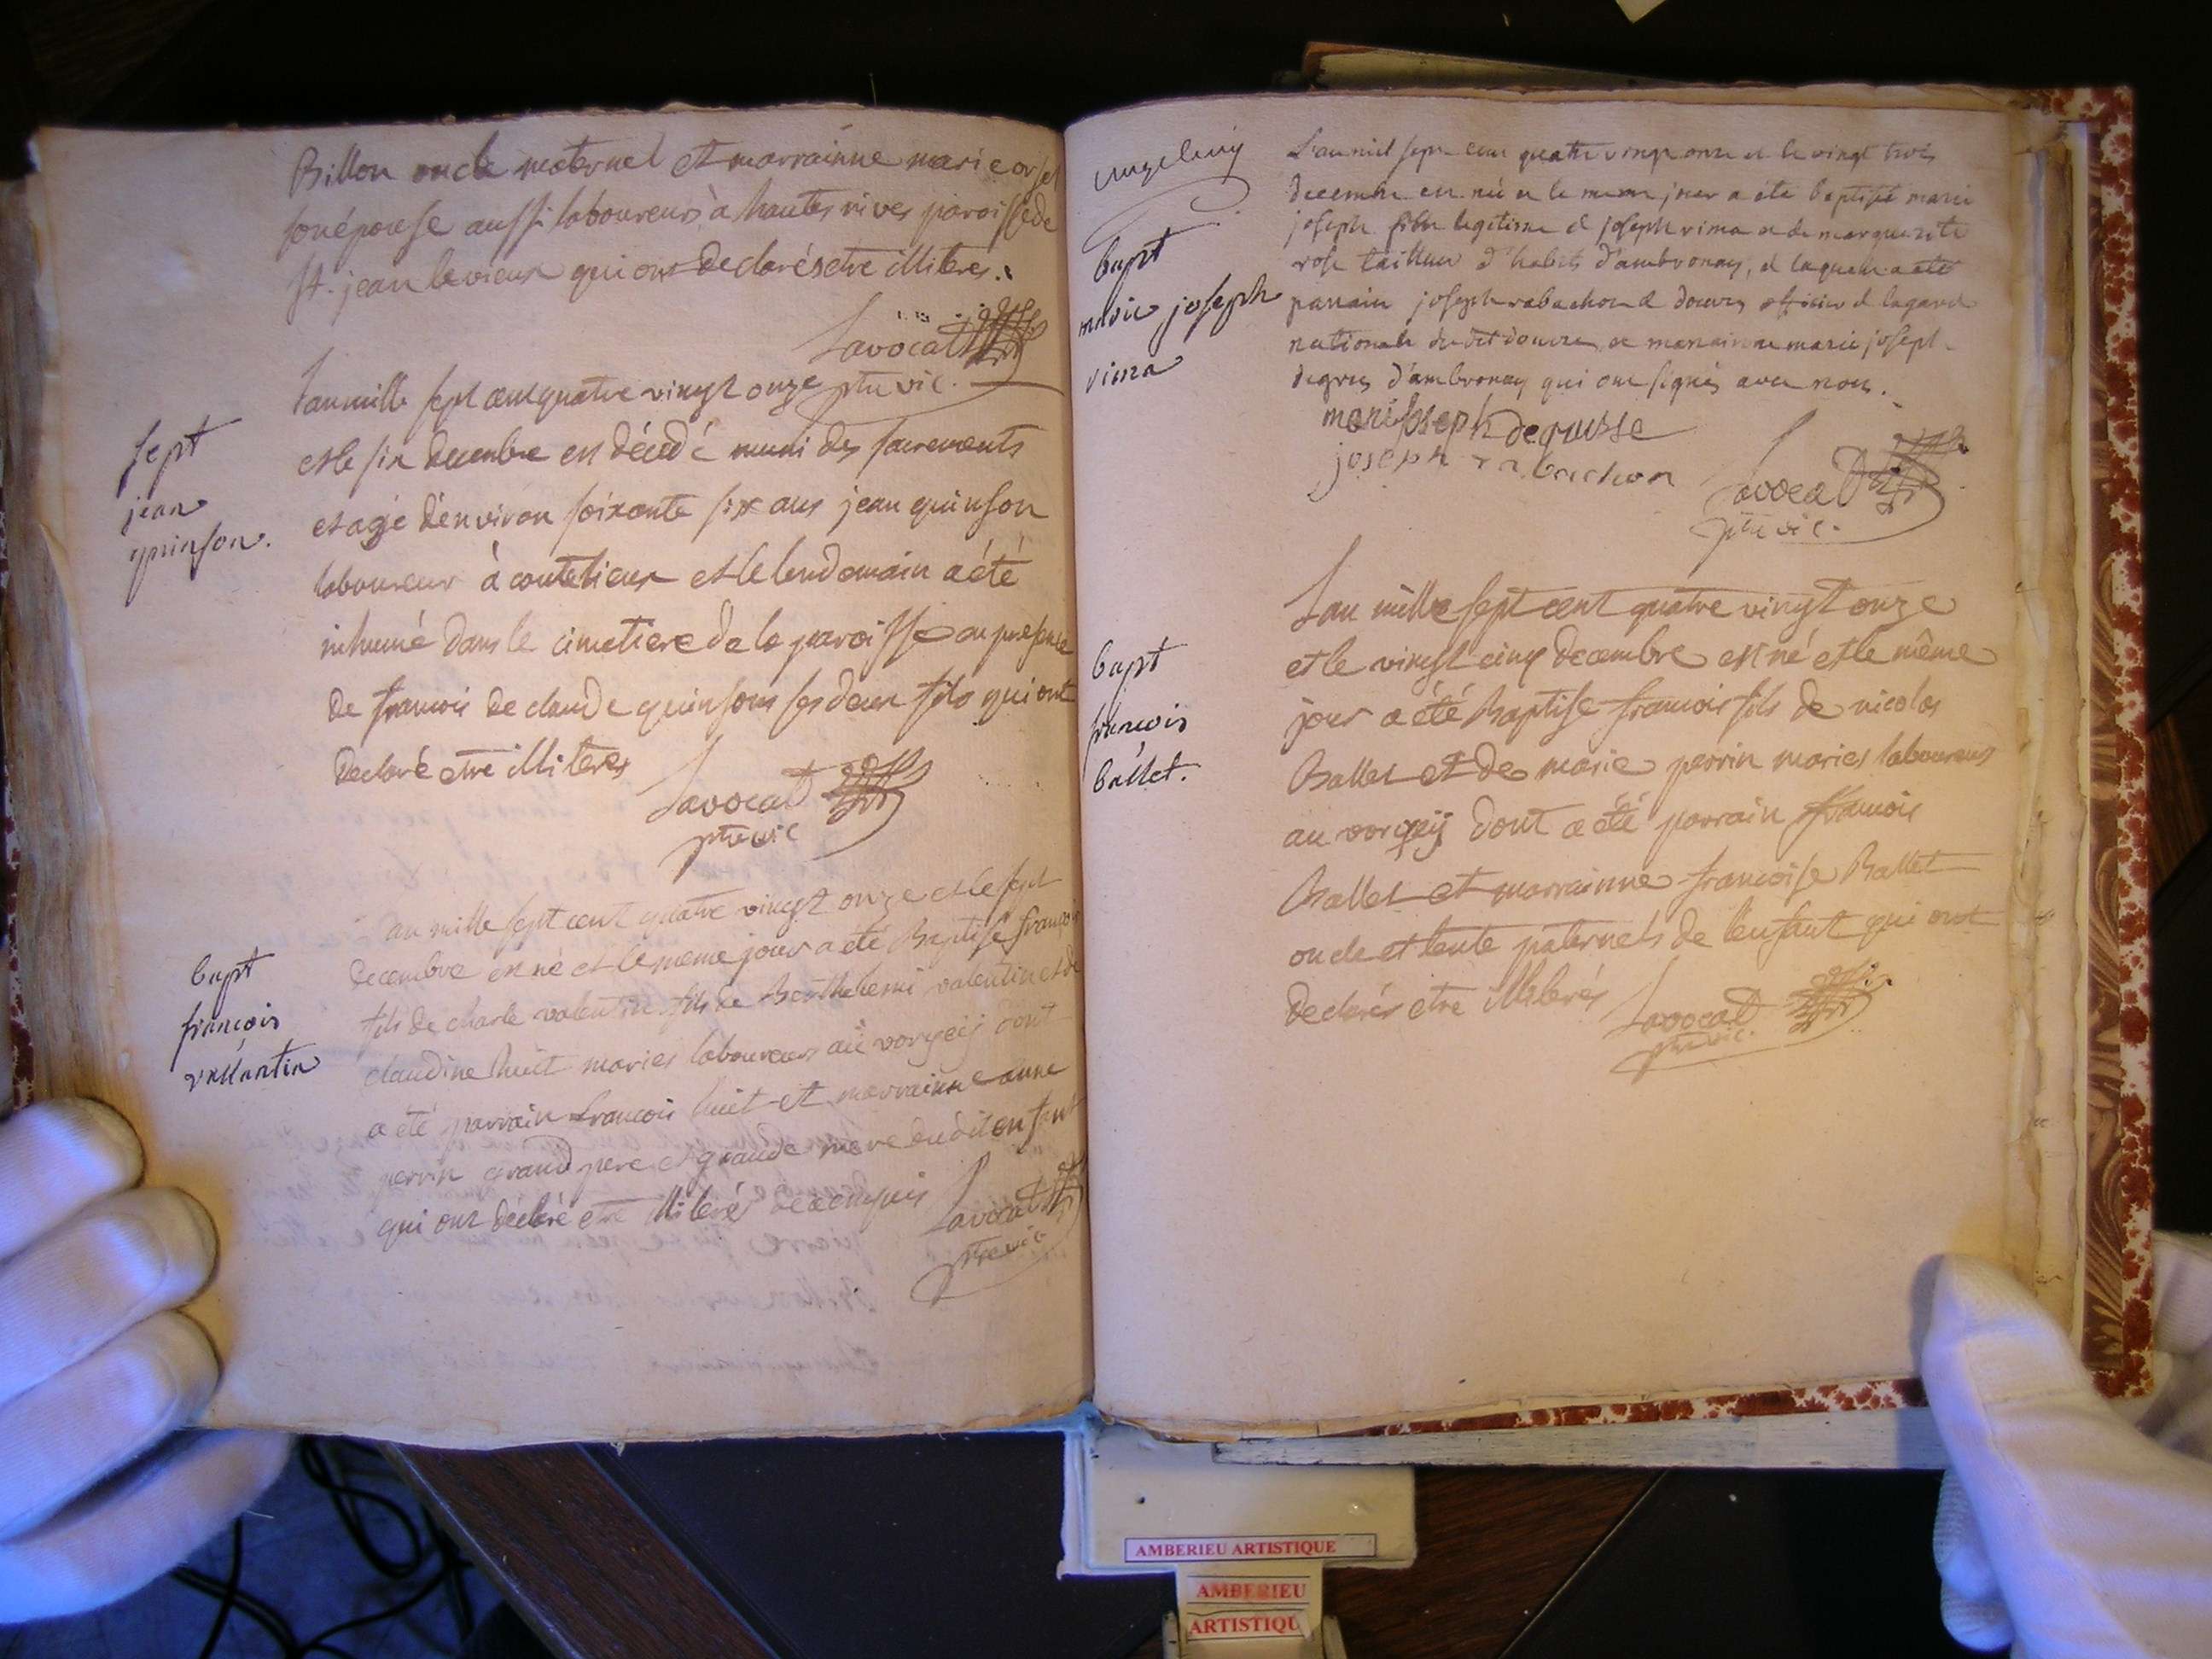 Billon oncle maternel et marrainne marie orset
son épouse aussi laboureurs à hautes rives paroisse de
St. jean le vieux qui ont declarés etre illiteres.
Lavocat
ptre vic.
L'an mille sept cent quatre vingt onze
et le six decembre est décédé muni des sacrements
sept
jean
quinson.
et agé d'environ soixante six ans jean quinson
laboureur à coutelieux et le lendemain a été
inhumé dans le cimetiere de la paroisse en presence
de francois de claude quinsons ses deux fils qui ont
declaré etre illiteres
Lavocat
ptre vic
an mille sept cent quatre vingt onze et le sept
decembre est né et le meme jour a été Baptisé francois
bapt
francois
vallantin
fils de charle valentin fils de Berthelemi valentin et de
claudine huit maries laboureurs au vorgeij dont
a été parrain francois huit et marrainne anne
perrin grand pere et grande mere du dit enfant
qui ont déclaré etre illiterés de ce enquis
Lavocat
ptre vic
bapt
marie joseph
vima
L'an mil sept cent quatre vingt onze et le vingt trois
decembre est née et le meme jour a été baptisée marie
joseph fille legitime de joseph vima et de marguerite
rose tailleur d'habits d'ambronay, de laquelle a été
parrain joseph rabachon de douvre officier de la garde
nationale du dit douvre et marrainne marie joseph
degrus d'ambronay qui ont signés avec nous.
marie joseph degrusse
joseph rabachon
Lavocat
ptre vic.
bapt
francois
ballet.
L'an mille sept cent quatre vingt onze
et le vingt cinq decembre est né et le même
jour a été Baptisé francois fils de nicolas
Ballet et de marie perrin maries laboureurs
au vorgeij dont a été parrain francois
Ballet et marrainne francoise Ballet
oncle et tente paternels de l'enfant qui ont
declarés etre illiterés
Lavocat
ptre vic.
AMBERIEU ARTISTIQUE
AMBERIEU
ARTISTIQU